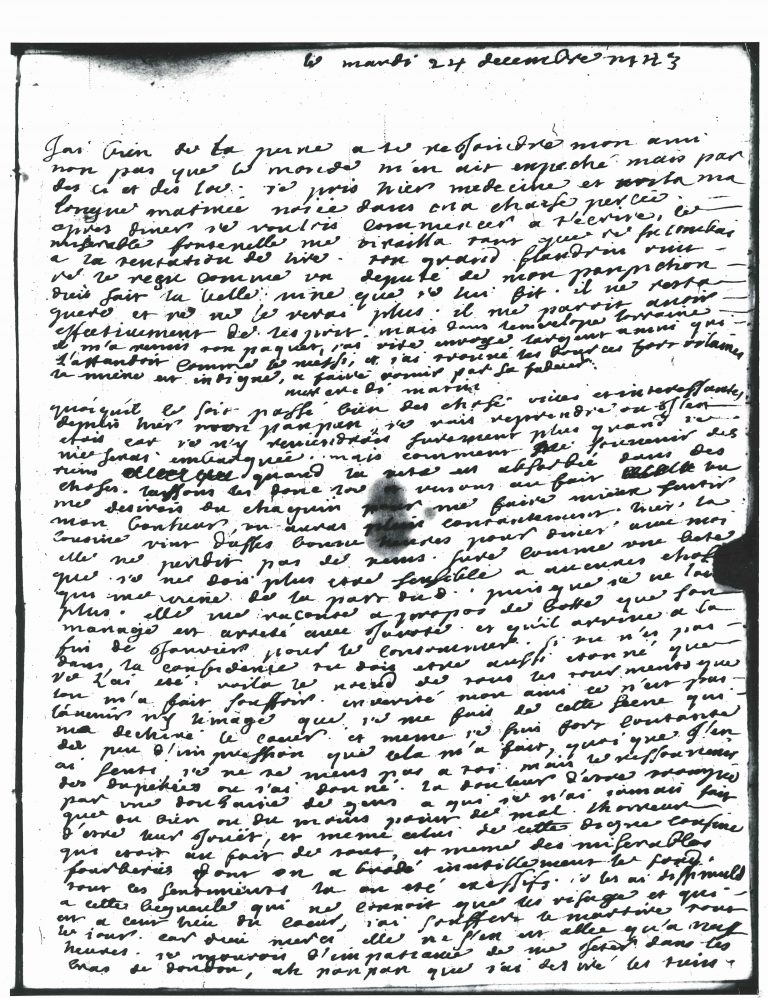 le mardi 24 decembre 1743
J'ai bien de la peine a te resjoindre mon ami
non pas que le monde m'en ait enpeché mais par
des ci et des la. je pris hier medecine et voila ma
longue matinée noiée dans cn la chaise percée.
apres diner je voulois commencer a t'ecrire, le
miserable fontenelle me tirailla tant que je sucombai
a la tentation de lire. ton grand flandrin vint
je le reçu comme un deputé de mon panpichon
dieu sait la belle mine que je lui fit. il ne resta
guere et je ne le verai plus. il me paroit avoir
effectivement de l'esprit mais dans l'envelope lorraine
il m'a remis ton paquet, j'ai vite envoyé l'argent a mini qui
l'attandoit comme le messi, et j'ai trouvé les douces fort
le mien est indigne, a faire vomir par sa fadeur.
mercredi matin
quoiqu'il se soit passé bien des choses vives et interessantes
depuis hier mon panpan je vais reprendre ou j'en
etois car je n'y reviendrois surement plus quand je
me serai embarquée. mais comment se souvenir des
riens quand la teste est absorbée dans des
choses. laissons les donc la venons au fait un
me desirois du chagrin pour me faire mieux sentir
mon bonheur, tu auras contentement. hier la
cousine vint d'assés bonne heures pour diner avec moi
elle ne perdit pas de tems. sure comme une bete
que je ne dois plus etre sensible a aucunes choses
qui me viene de la part du d. puisque je ne l'ai
plus. elle me raconta a propos de botte que son
mariage est arreté avec et qu'il arrive a la
fin de janvier pour le consommer. si tu n'es pas
dans la confidence tu dois etre aussi etonné que
je l'ai eté. voila le noeud de tous les tourments que
l'on m'a fait souffrir. en verité mon ami ce n'est pas
l'avenir n'y l'image que je me fais de cette scene qui
ma dechiré le coeur. et meme je suis fort contante
du peu d'impression que cela m'a fait, quoi que j'en
ai senti je ne te mens pas a toi. mais le ressouvenir
des ou j'ai donné. la douleur d'etre trompée
par une de gens a qui je n'ai jamais fait
que du bien ou du moins point de mal. l'horreur
d'etre leur jouët, et meme celui de cette digne cousine
qui etoit au fait de tout, et meme des miserables
fourberies dont on a brodé inutillement le fond.
tout ces sentiments la on eté exessifs. je les ai dissimulé
a cette begueule qui ne connoit que les visage et qui
est a cent lieu du coeur, j'ai souffert le martire tout
le jour car dieu merci elle ne s'en est allée qu'a neuf
heures. je mourois d'impatiance de me jeter dans les
bras de doudou, ah panpan que j'ai desiré les tiens.